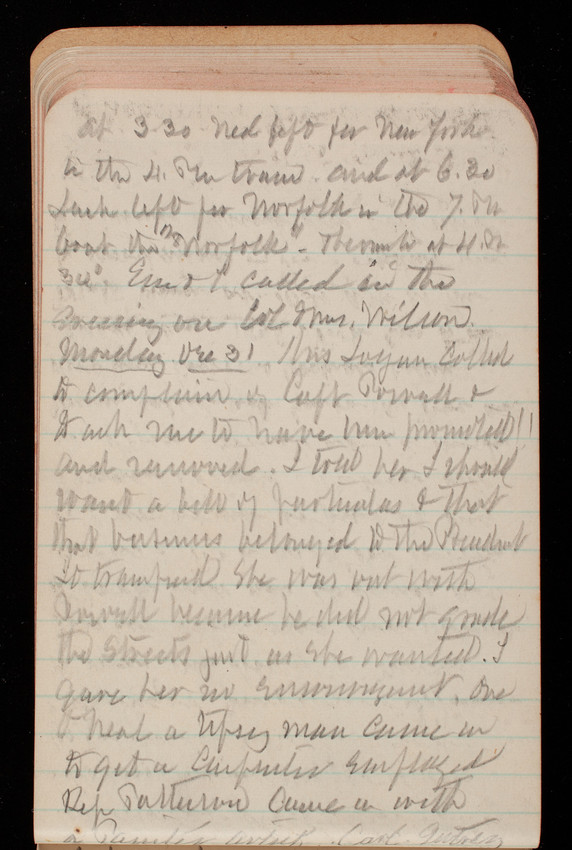 at 3 30 Ned left for New York
in the 4. PM train and at 6.30
Jack left for Norfolk in the 7. PM
boat the "Norfolk" at 4. PM
32°. Em & I called in the
evening on Col & Mrs. Wilson.
Monday Dec 31 Mrs Logan called
to complain of Capt Powell &
to ask me to have him promoted!!
and removed. I told her I should
want a bill of particulars & that
that business belonged to the President
It transpired she was out with
Powell because he did not grade
the streets just as she wanted. I
gave her no encouragement.
a tipsy man came in
to get a Carpenter employed
Rep Patterson came in with
a